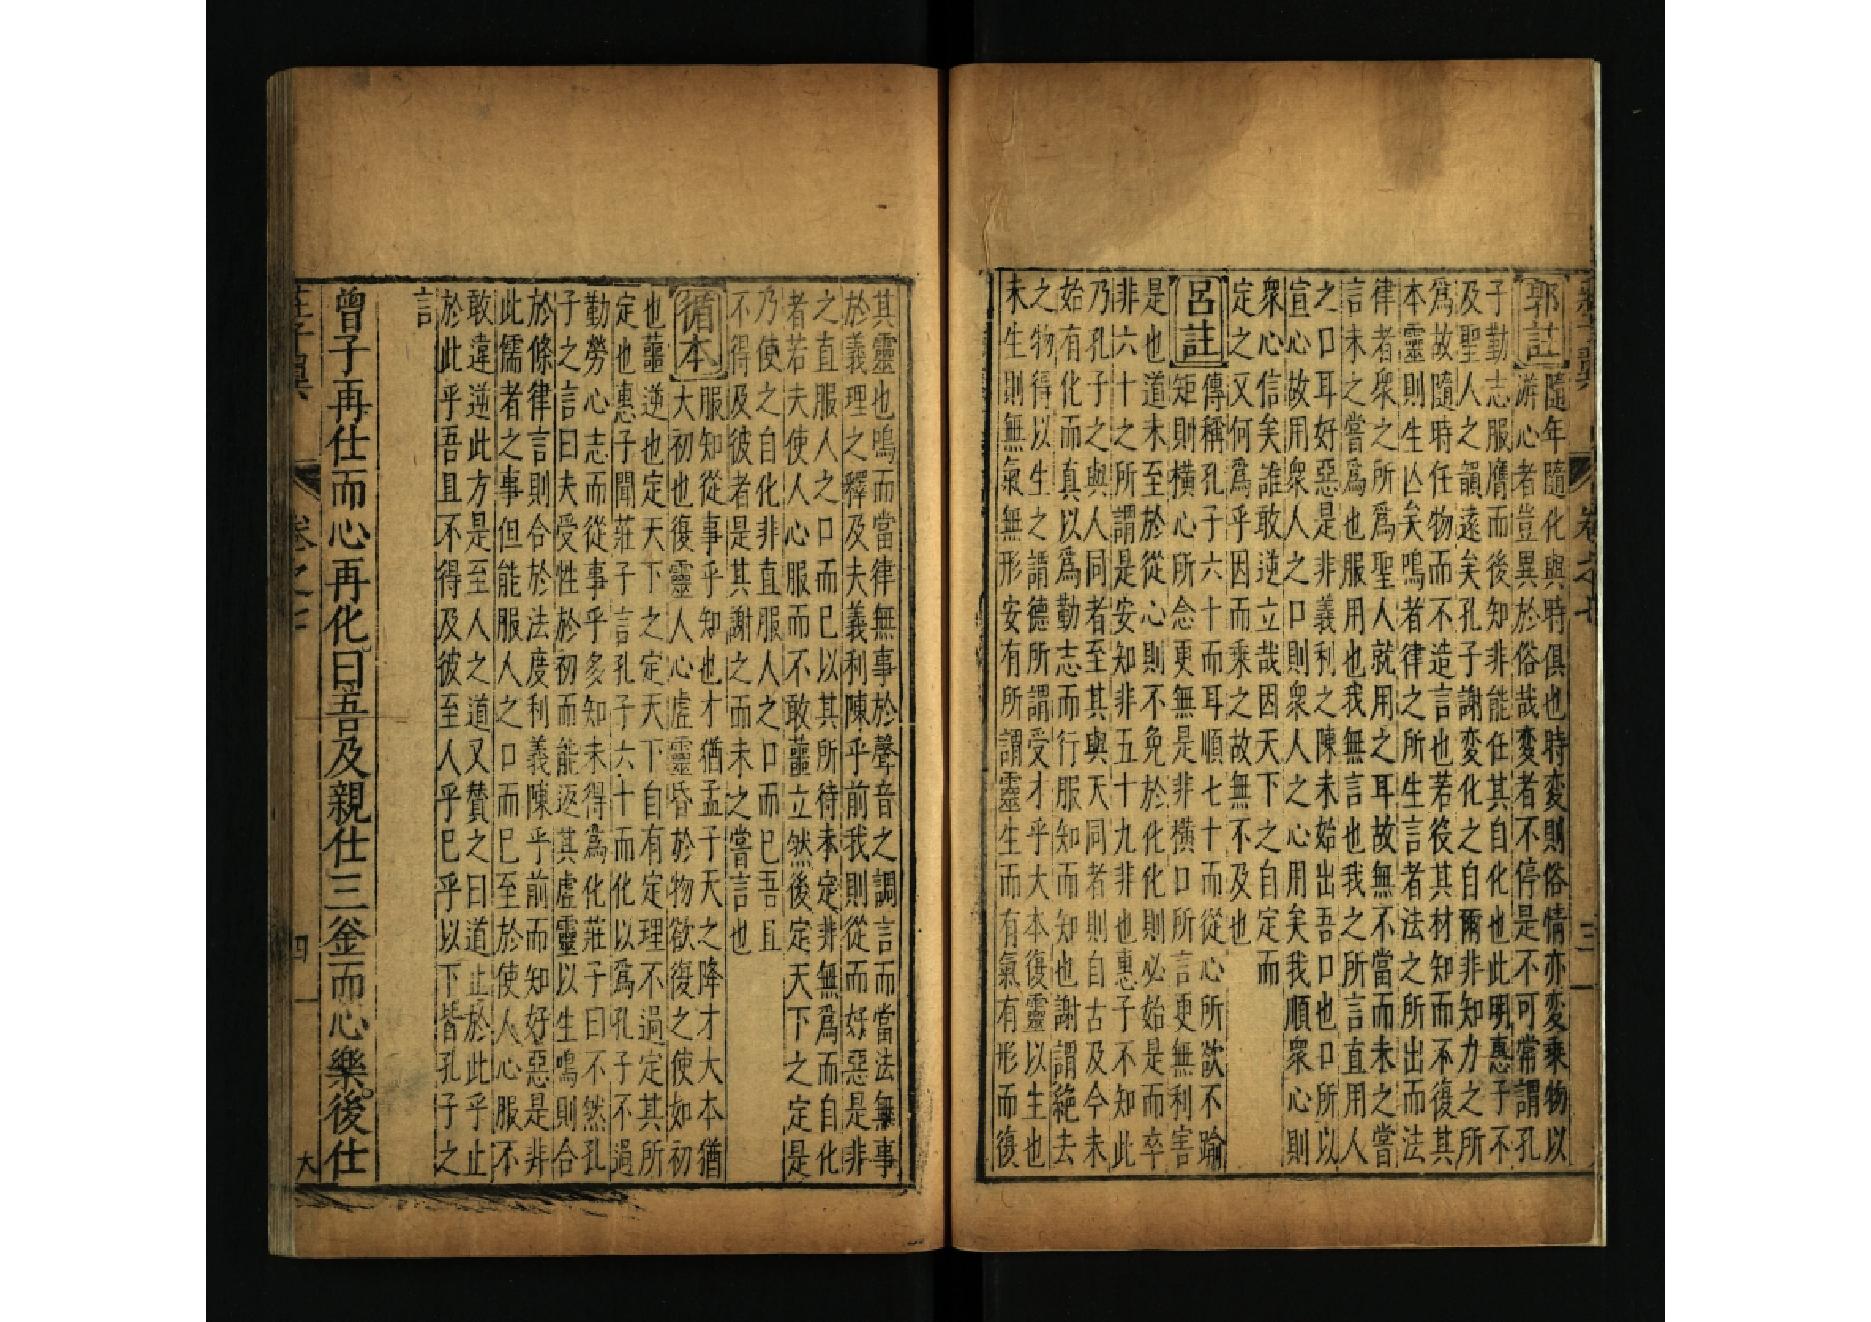 莊子翼 卷之七 三
郭註
隨年隨化與時俱也時変則俗情亦変乗物以
游心者豈異於俗哉変者不停是不可常謂孔
子勤志服膺而後知非能任其自化也此明惠子不
及聖人之韻遠矣孔子謝変化之自爾非知力之所
爲故隨時任物而不造言也若役其材知而不復其
本靈則生亾矣鳴者律之所生言者法之所出而法
律者衆之所爲聖人就用之耳故無不當而未之嘗
言未之嘗爲也服用也我無言也我之所言直用人
之口耳好惡是非義利之陳未始出吾口也口所以
宣心故用衆人之口則衆人之心用矣我順衆心則
衆心信矣誰敢逆立哉因天下之自定而
定之又何爲乎因而乘之故無不及也
呂註
傳稱孔子六十而耳順七十而從心所欲不踰
矩則橫心所念更無是非橫口所言更無利害
是也道未至於從心則不免於化化則必始是而卒
非六十之所謂是安知非五十九非也惠子不知此
乃孔子之與人同者至其與天同者則自古及今未
始有化而真以爲勤志而行服知而知也謝謂絶去
之物得以生之謂德所謂受才乎大本復靈以生也
未生則無氣無形安有所謂靈生而有氣有形而復
其靈也鳴而當律無事於聲音之調言而當法無事
於義理之釋及夫義利陳乎前我則從而好惡是非
之直服人之口而已以其所待未定非無爲而自化
者若夫使人心服而不敢蘁立然後定天下之定是
乃使之自化非直服人之口而已吾且
不得及彼者是其謝之而未之嘗言也
循本
服知從事乎知也才猶孟子天之降才大本猶
大初也復靈人心虛靈昏於物欲復之使如初
也蘁逆也定天下之定天下自有定理不過定其所
定也惠子聞莊子言孔子六十而化以爲孔子不過
勤勞心志而從事乎多知未得爲化莊子曰不然孔
子之言曰夫受性於初而能返其虛靈以生鳴則合
於條律言則合於法度利義陳乎前而知好惡是非
此儒者之事但能服人之口而已至於使人心服不
敢違逆此方是至人之道又贊之曰道止於此乎止
於此乎吾且不得及彼至人乎已乎以下皆孔子之
言
曾子再仕而心再化曰吾及親仕三釜而心樂後仕
莊子翼 卷之七 四 大